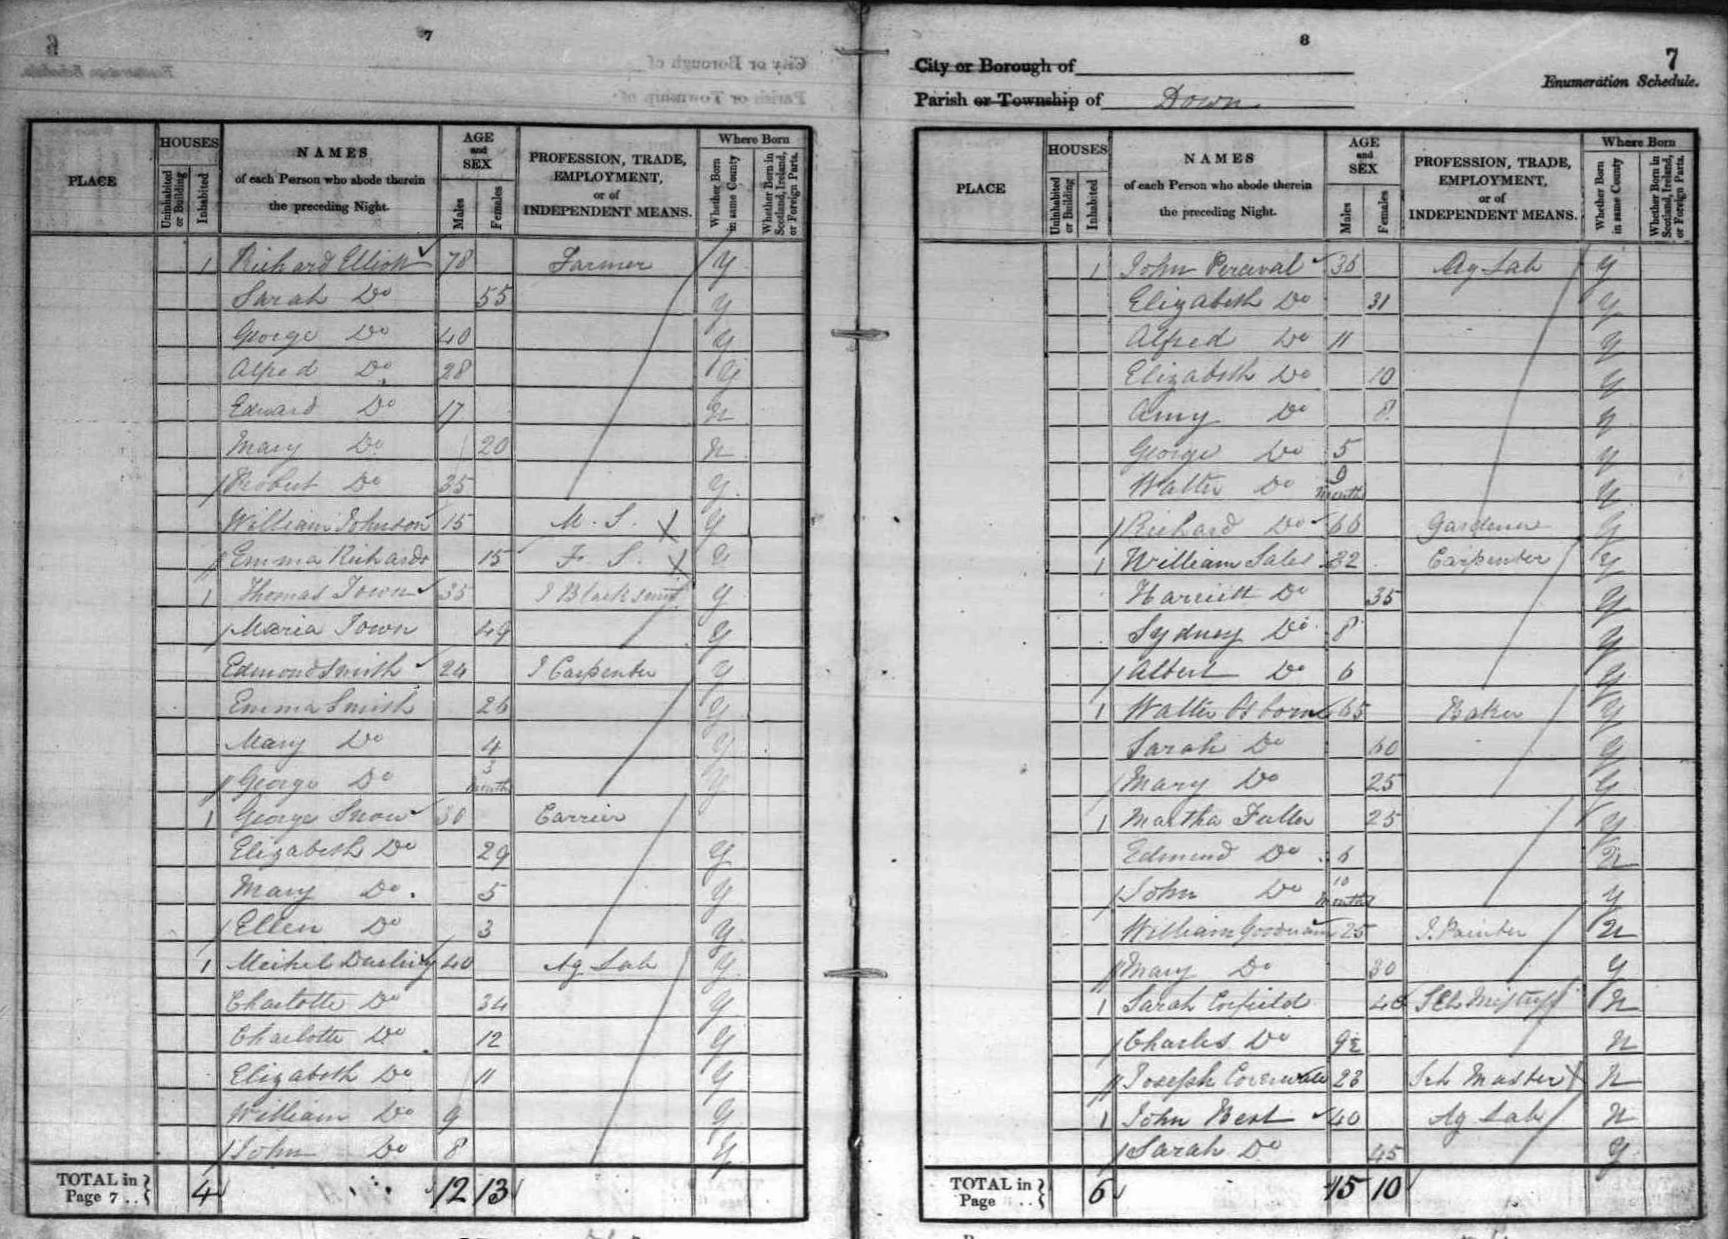 7
HOUSES
NAMES
AGE and SEX
PROFESSION, TRADE, EMPLOYMENT, or of INDEPENDENT MEANS.
Where Born
PLACE
Uninhabited or Building
Inhabited
of each Person who abode therein the preceding Night.
Males
Females
Whether Born in same County
Whether Born in Scotland, Ireland, or Foreign Parts.
1 Richard Elliott 78 Farmer y
Sarah Do 55 y
George Do 40 y
Alfred Do 28 y
Edward Do 17 n
Mary Do 20 n
Robert Do 35 y
William Johnson 15 M. S. y
Emma Richards 15 F. S. y
1 Thomas Town 35 J Blacksmith y
Maria Town 49 y
Edmond Smith 24 J Carpenter y
Emma Smith 26 y
Mary Do 4 y
George Do 3 months y
1 George Snow 30 Carrier
Elizabeth Do 29 y
Mary Do 5 y
Ellen Do 3 y
1 40 Ag Lab y
Charlotte Do 34 y
Charlotte Do 12 y
Elizabeth Do 11 y
William Do 9 y
John Do 8 y
TOTAL in Page 7 . . 4 12 13
8
7
City or Borough of
Enumeration Schedule.
Parish or Township of Down
HOUSES
NAMES
AGE and SEX
PROFESSION, TRADE, EMPLOYMENT, or of INDEPENDENT MEANS.
Where Born
PLACE
Uninhabited or Building
Inhabited
of each Person who abode therein the preceding Night.
Males
Females
Whether Born in same County
Whether Born in Scotland, Ireland, or Foreign Parts.
1 John Perceval 35 Ag Lab y
Elizabeth Do 31 y
Alfred Do 11 y
Elizabeth Do 10 y
Amy Do 8 y
George Do 5 y
Walter Do 9 months y
Richard Do 66 Gardener y
1 William Sales 32 Carpenter y
Harriett Do 35 y
Sydney Do 8 y
Albert Do 6 y
1 Walter Osborne 65 Baker y
Sarah Do 60 y
Mary Do 25 y
1 Martha Fuller 25 y
Edmund Do 6 n
John Do 10 months y
William 25 J. Painter n
Mary Do 30 y
1 Sarah Corfield 40 Sch Mistress n
Charles Do 9½ n
Joseph 23 Sch Master n
1 John Bert 40 Ag Lab n
Sarah Do 45 y
TOTAL in Page . . 6 15 10